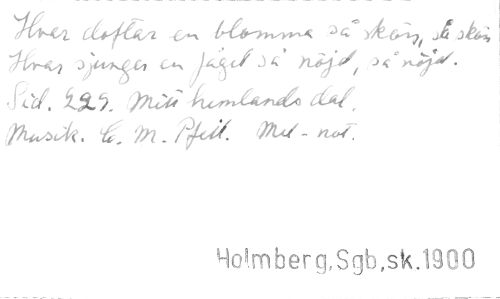 Hvar doftar en blomma så skön, så skön
Hvar sjunger en fågel så nöjd, så nöjd.
Sid. 229. Mitt himlands dal.
Musik. C. M. Pfeil. Mel-not.
Holmberg,Sgb,sk.1900